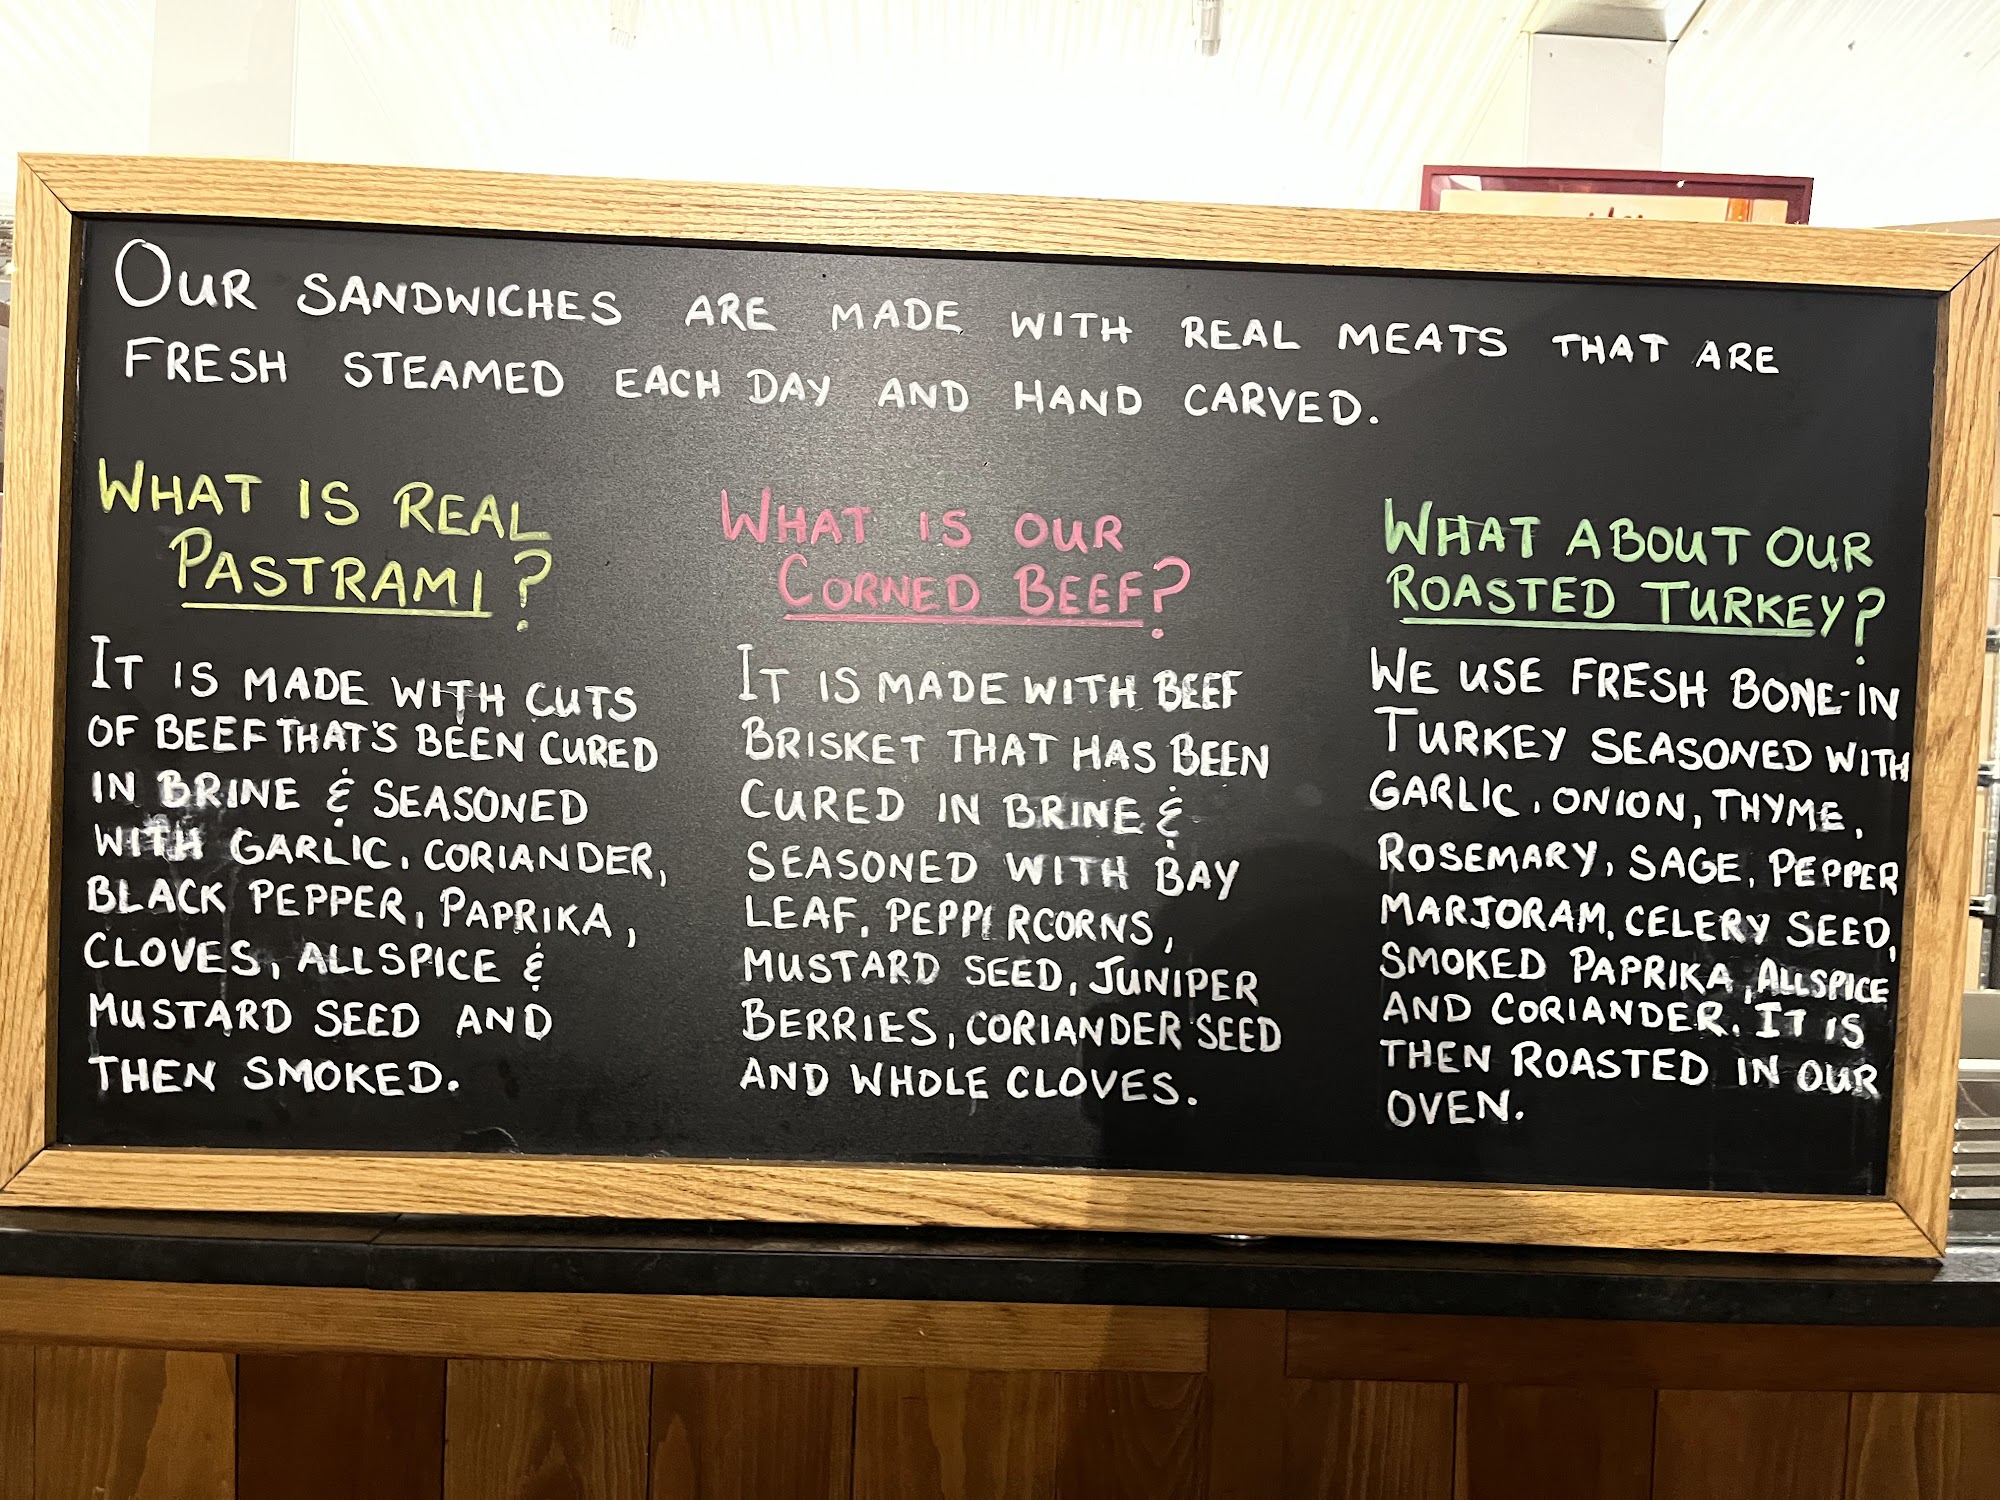 OUR SANDWICHES ARE MADE WITH REAL MEATS THAT ARE
FRESH STEAMED EACH DAY AND HAND CARVED.
WHAT IS REAL
PASTRAMI?
IT IS MADE WITH CUTS
OF BEEF THAT'S BEEN CURED
IN BRINE & SEASONED
WITH GARLIC, CORIANDER,
BLACK PEPPER, PAPRIKA,
CLOVES, ALLSPICE &
MUSTARD SEED AND
THEN SMOKED.
WHAT IS OUR
CORNED BEEF?
IT IS MADE WITH BEEF
BRISKET THAT HAS BEEN
CURED IN BRINE &
SEASONED WITH BAY
LEAF, PEPPERCORNS,
MUSTARD SEED, JUNIPER
BERRIES, CORIANDER SEED
AND WHOLE CLOVES.
WHAT ABOUT OUR
ROASTED TURKEY?
WE USE FRESH BONE-IN
TURKEY SEASONED WITH
GARLIC, ONION, THYME,
ROSEMARY, SAGE, PEPPER
MARJORAM, CELERY SEED,
SMOKED PAPRIKA, ALLSPICE
AND CORIANDER. IT IS
THEN ROASTED IN OUR
OVEN.